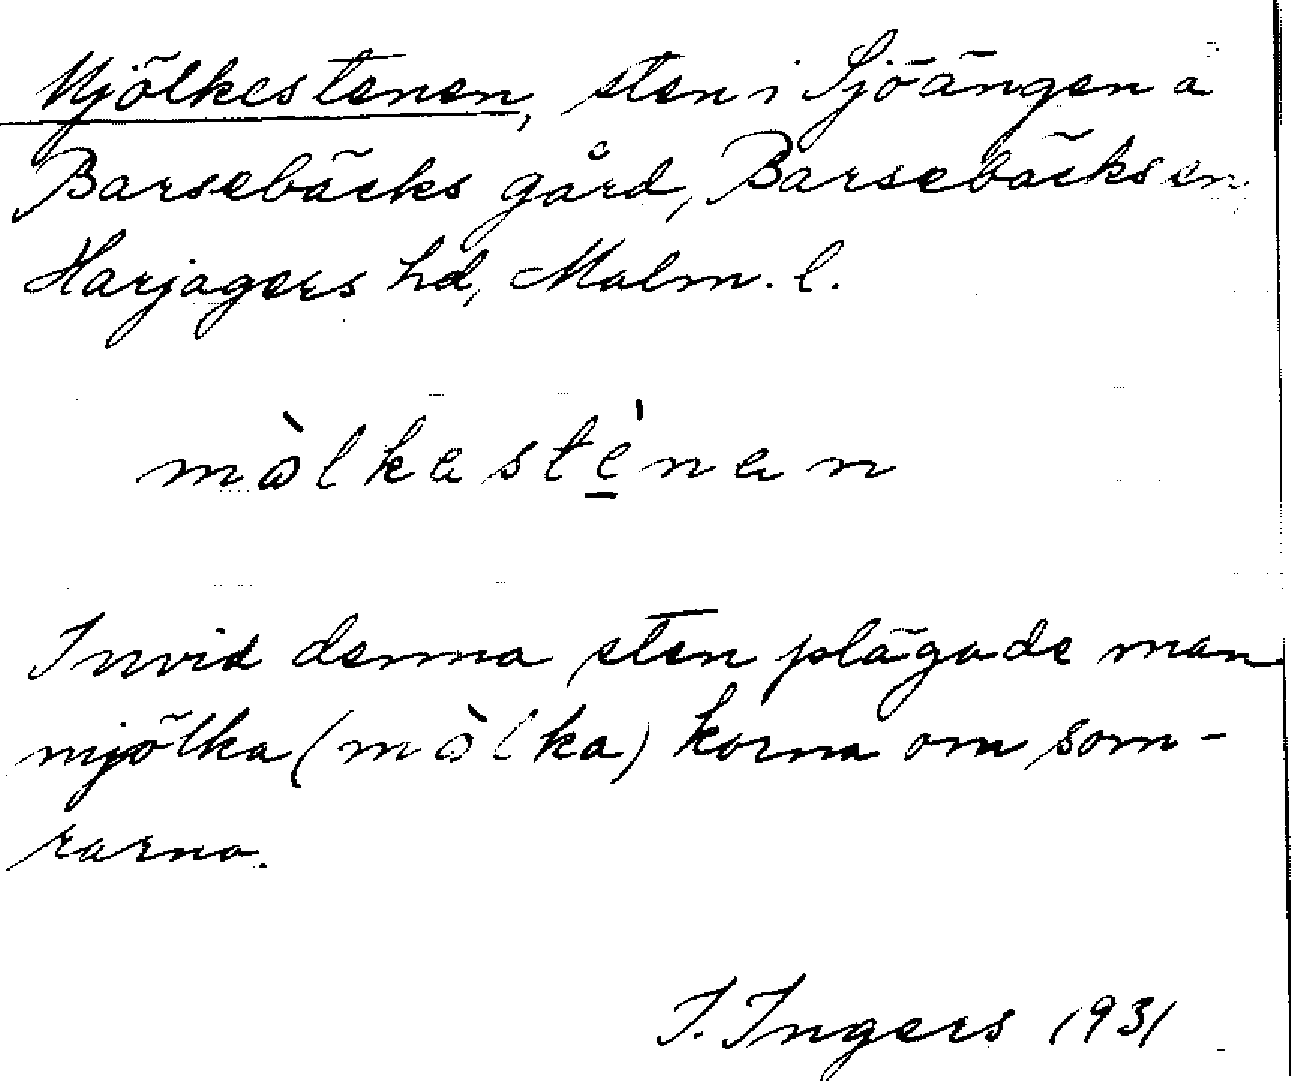 Mjölkestenen, sten i Sjöängen å
Barsebäcks gård, Barsebäcks sn,
Harjagers hd, Malm. l.
mòlkastènan
Invid denna sten plägade man
mjölka (mòlka) korna om som-
rarna.
I. Ingers 1931